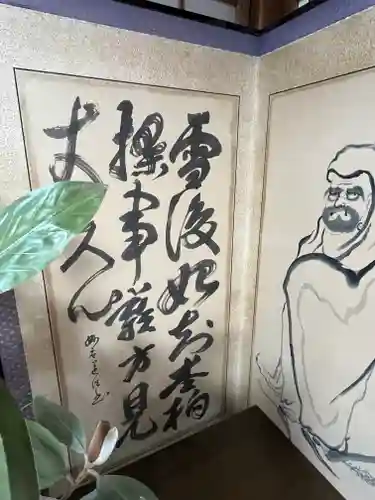 雪後始知松柏
操事難方見
丈夫心